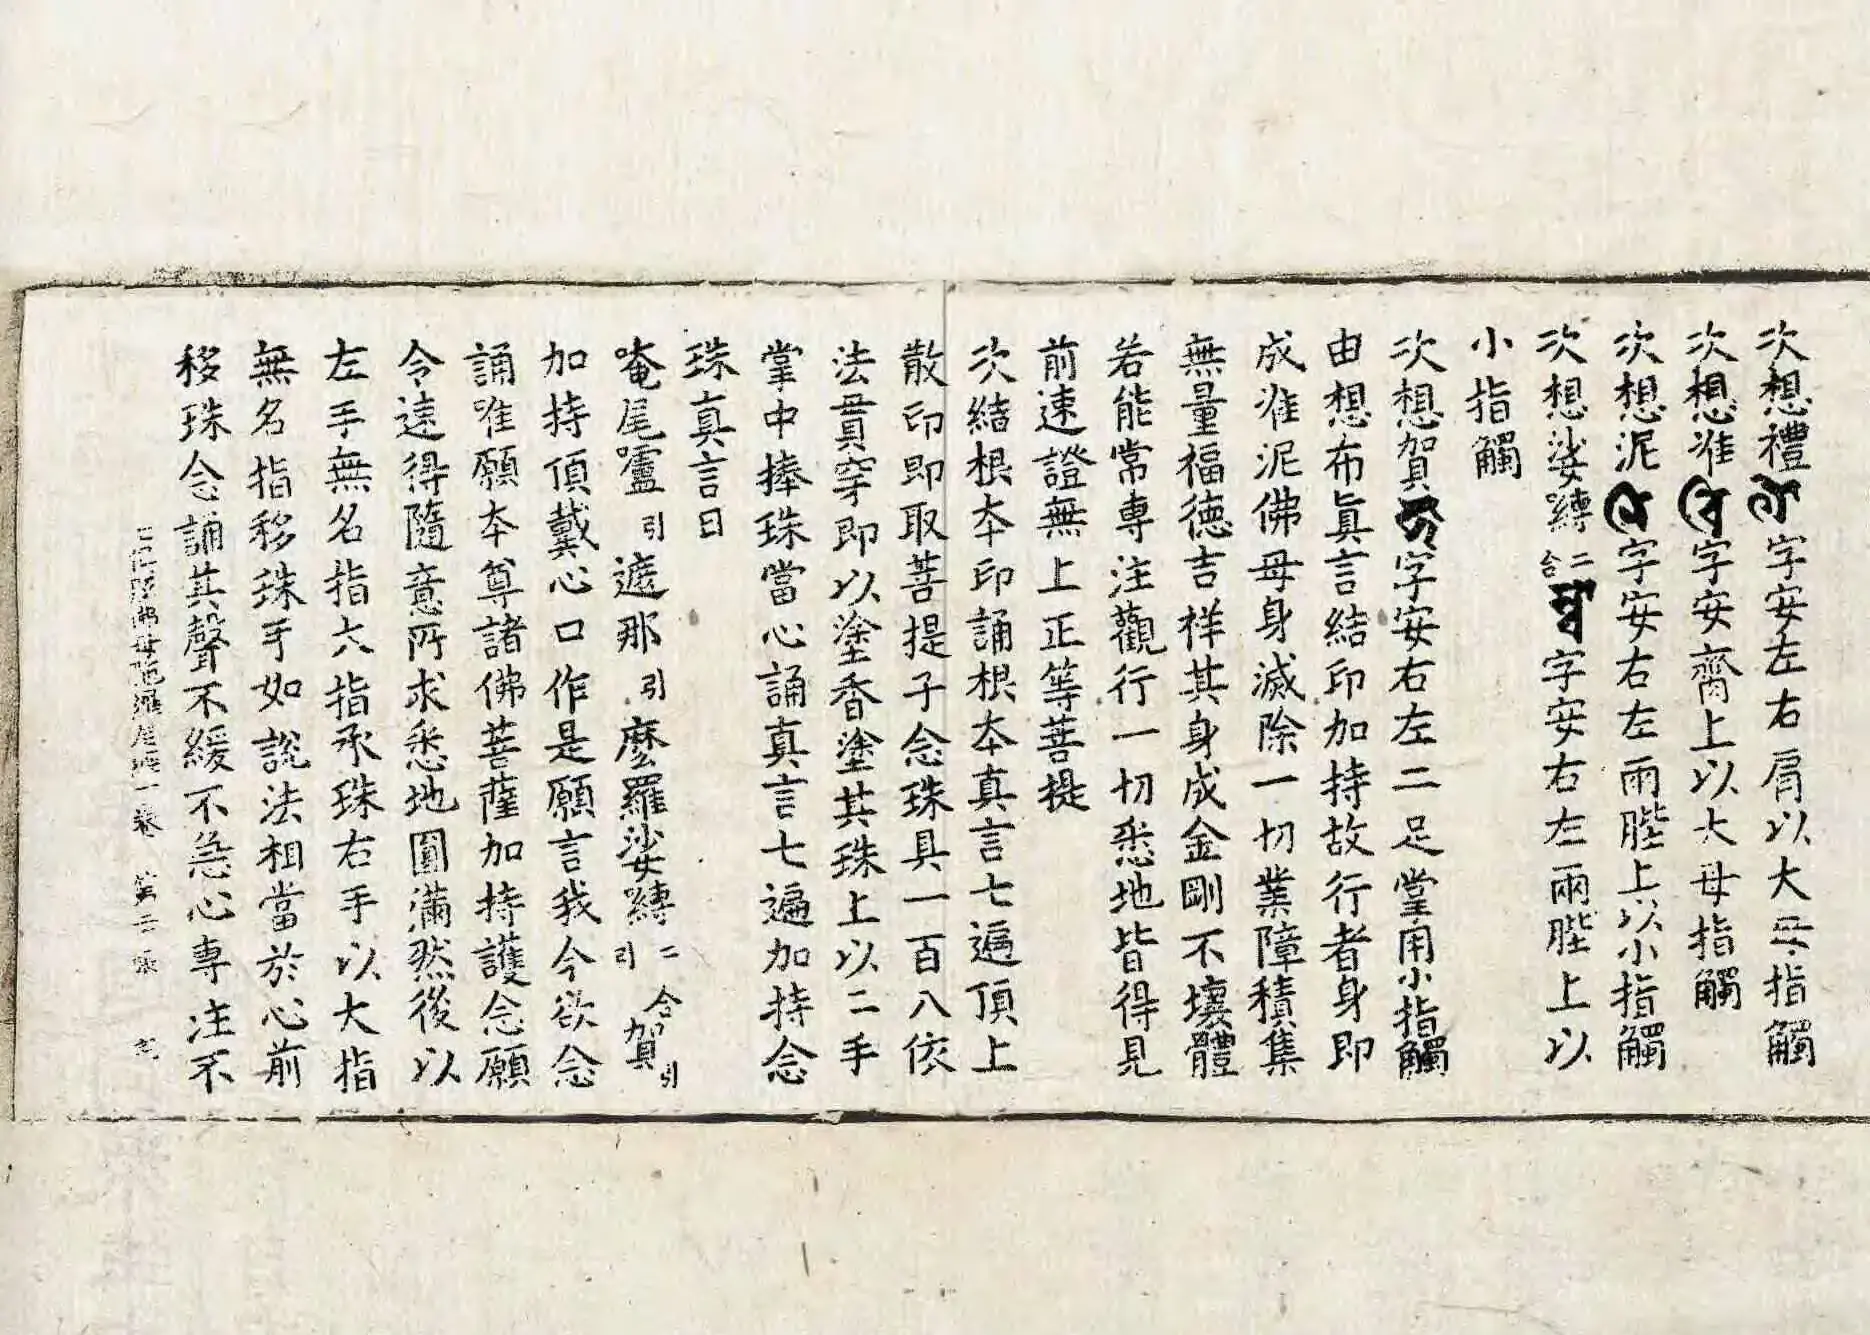 次想禮字安左右肩以大母指觸
次想准字安齊上以大母指觸
次想泥字安右左兩䏶上以小指觸
次想娑嚩二合字安右左兩䏶上以
小指觸
次想賀字安右左二足掌用小指觸
由想布眞言結印加持故行者身即
成准泥佛母身滅除一切業障積集
無量福德吉祥其身成金剛不壞體
若能常專注觀行一切悉地皆得見
前速證無上正等菩提
次結根本印誦根本真言七遍頂上
散印即取菩提子念珠具一百八依
法貫穿即以塗香塗其珠上以二手
掌中捧珠當心誦真言七遍加持念
珠真言曰
唵尾嚧引遮那引麼羅娑嚩二合引賀引
加持頂戴心口作是願言我今欲念
誦唯願本尊諸佛菩薩加持護念願
令速得隨意所求悉地圓滿然後以
左手無名指大指承珠右手以大指
無名指移珠手如說法相當於心前
移珠念誦其聲不緩不急心專注不
佛母陁羅尼經一卷 第三張